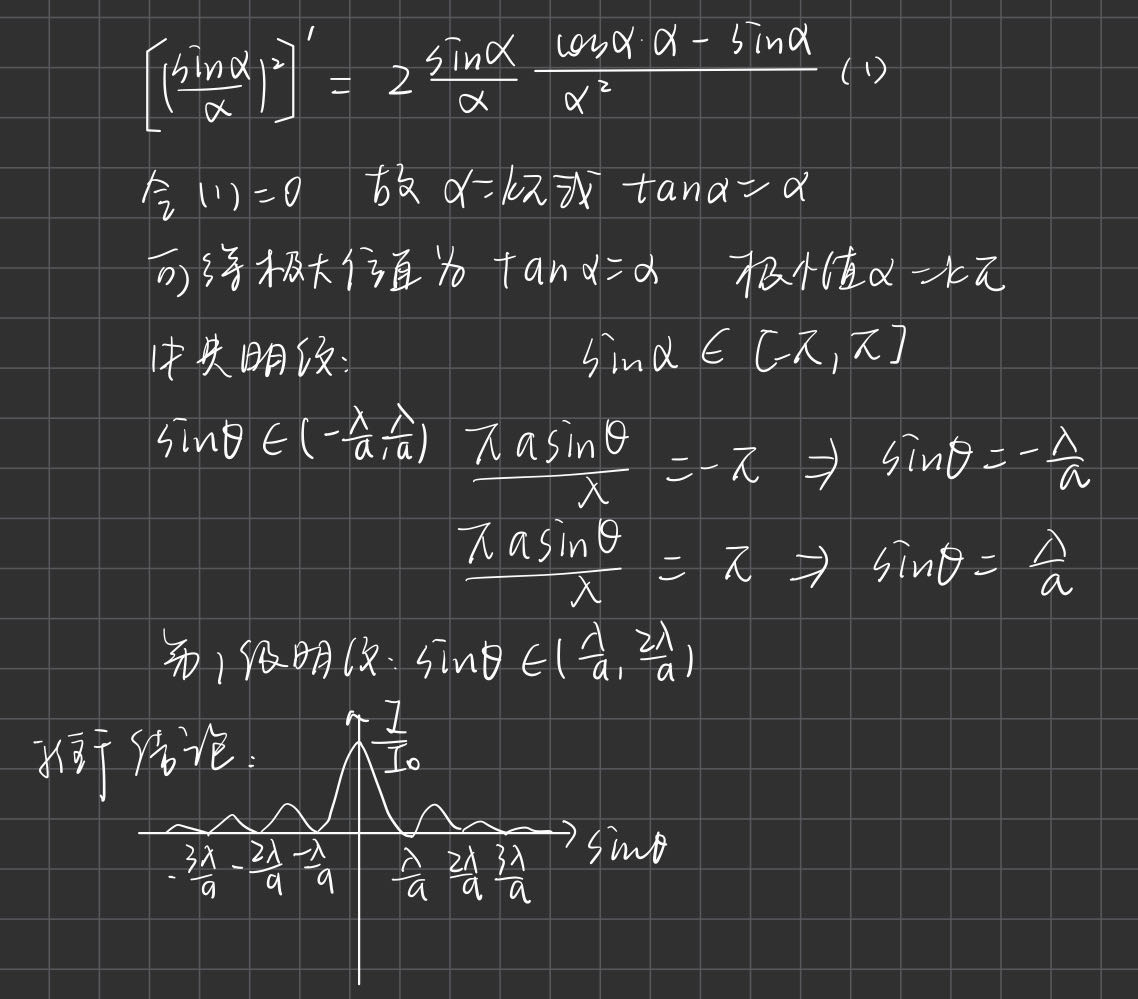 [(sinα/α)²]′ = 2 sinα/α (cosα·α - sinα)/α² (1)
令(1)=0 故 α=kπ或 tanα=α
可得极大值为 tanα=α 极小值α=kπ
中央明纹: sinα ∈ [-π, π]
sinθ ∈ (-λ/a, λ/a) πasinθ/λ = -π ⇒ sinθ = -λ/a
πasinθ/λ = π ⇒ sinθ = λ/a
第1级明纹: sinθ ∈ (λ/a, 2λ/a)
I/I₀
结论:
sinθ
-3λ/a -2λ/a -λ/a λ/a 2λ/a 3λ/a